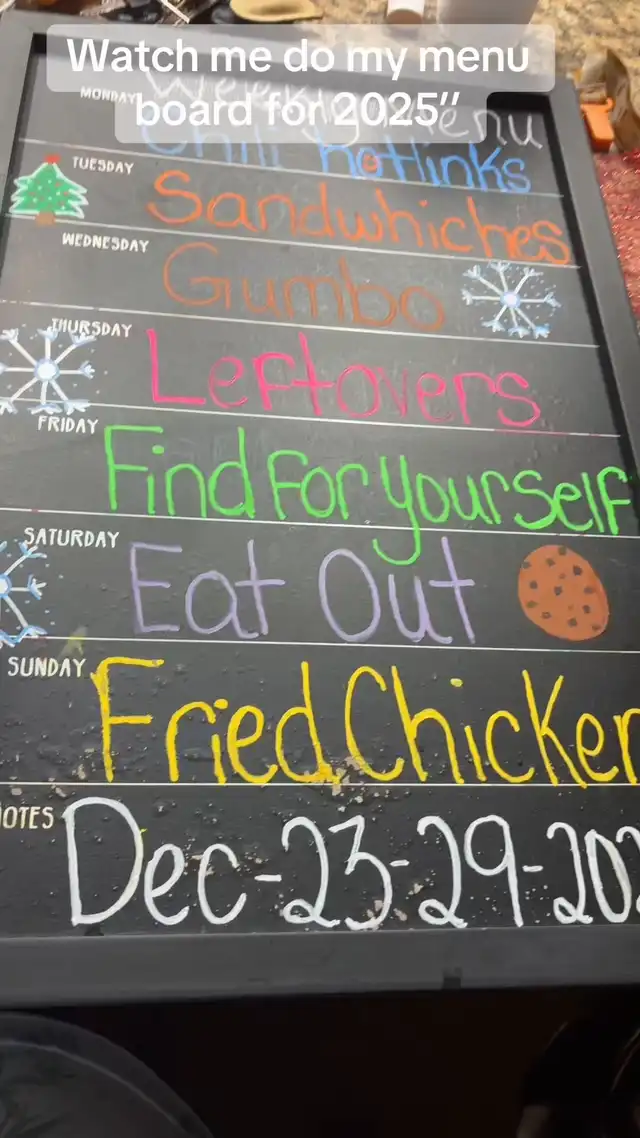 Watch me do my menu
board for 2025”
Weekly Menu
MONDAY
Chili Hotlinks
TUESDAY
Sandwhiches
WEDNESDAY
Gumbo
THURSDAY
Leftovers
FRIDAY
Find For yourself
SATURDAY
Eat Out
SUNDAY
Fried Chicken
NOTES
Dec-23-29-202